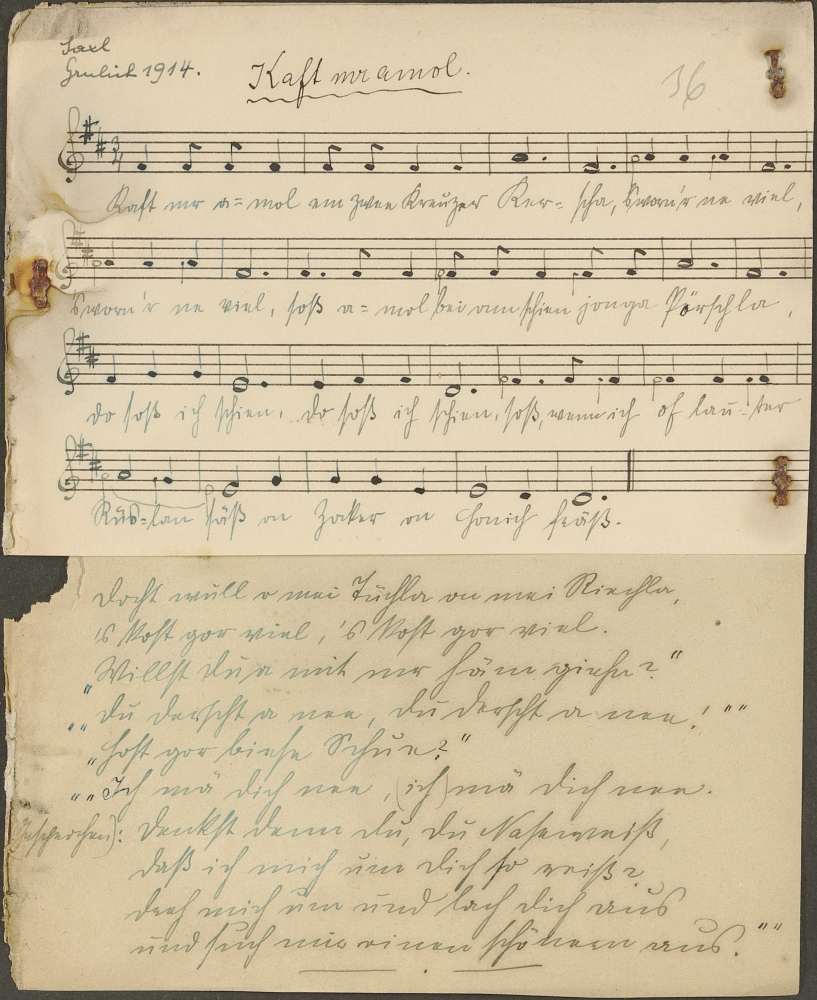 Saxl
Grulich 1914.
Kaft mr amol.
36
Kaft mr a=mol em zwee Kreuzer Ker= scha, 'sworn'r ne viel,
'sworn'r ne viel, soß a=mol bei am schien jonga Pörschla,
do soß ich schien, do soß ich schien, soß, wenn ich of lau=ter
Rüs=lan säß on Zocker on Honich fräß.
Docht wull o mei Tüchla on mei Riechla,
's kost gor viel, 's kost gor viel.
"Willst du a mit mr häm giehn?"
""Du derscht a nee, du derscht a nee!""
"Host gor biese Schue?"
""Ich mä dich nee, (ich) mä dich nee.
Denkst denn du, du Naseweiß,
daß ich mich um dich so reiß?
dreh mich um und lach dich aus
und such mir einen schönern aus.""